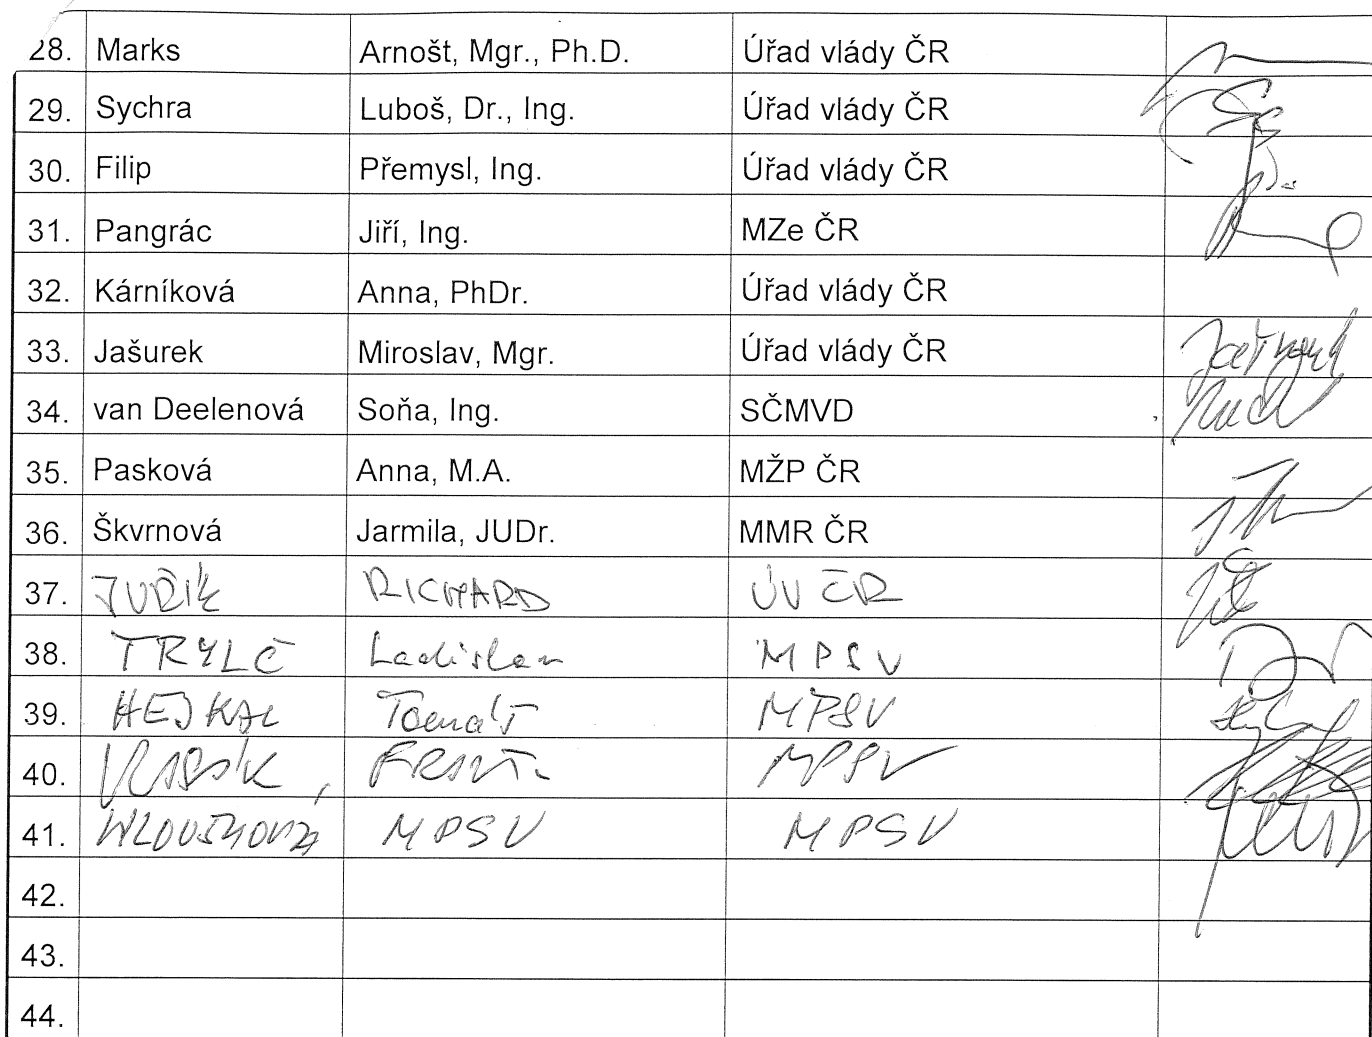 28. Marks Arnošt, Mgr., Ph.D. Úřad vlády ČR
29. Sychra Luboš, Dr., Ing. Úřad vlády ČR
30. Filip Přemysl, Ing. Úřad vlády ČR
31. Pangrác Jiří, Ing. MZe ČR
32. Kárníková Anna, PhDr. Úřad vlády ČR
33. Jašurek Miroslav, Mgr. Úřad vlády ČR
34. van Deelenová Soňa, Ing. SČMVD
35. Pasková Anna, M.A. MŽP ČR
36. Škvrnová Jarmila, JUDr. MMR ČR
37. JUŘÍK RICHARD ÚV ČR
38. TRYLČ Ladislav MPSV
39. HEJKAL Tomáš MPSV
40. MPSV
41. MPSV MPSV
42.
43.
44.